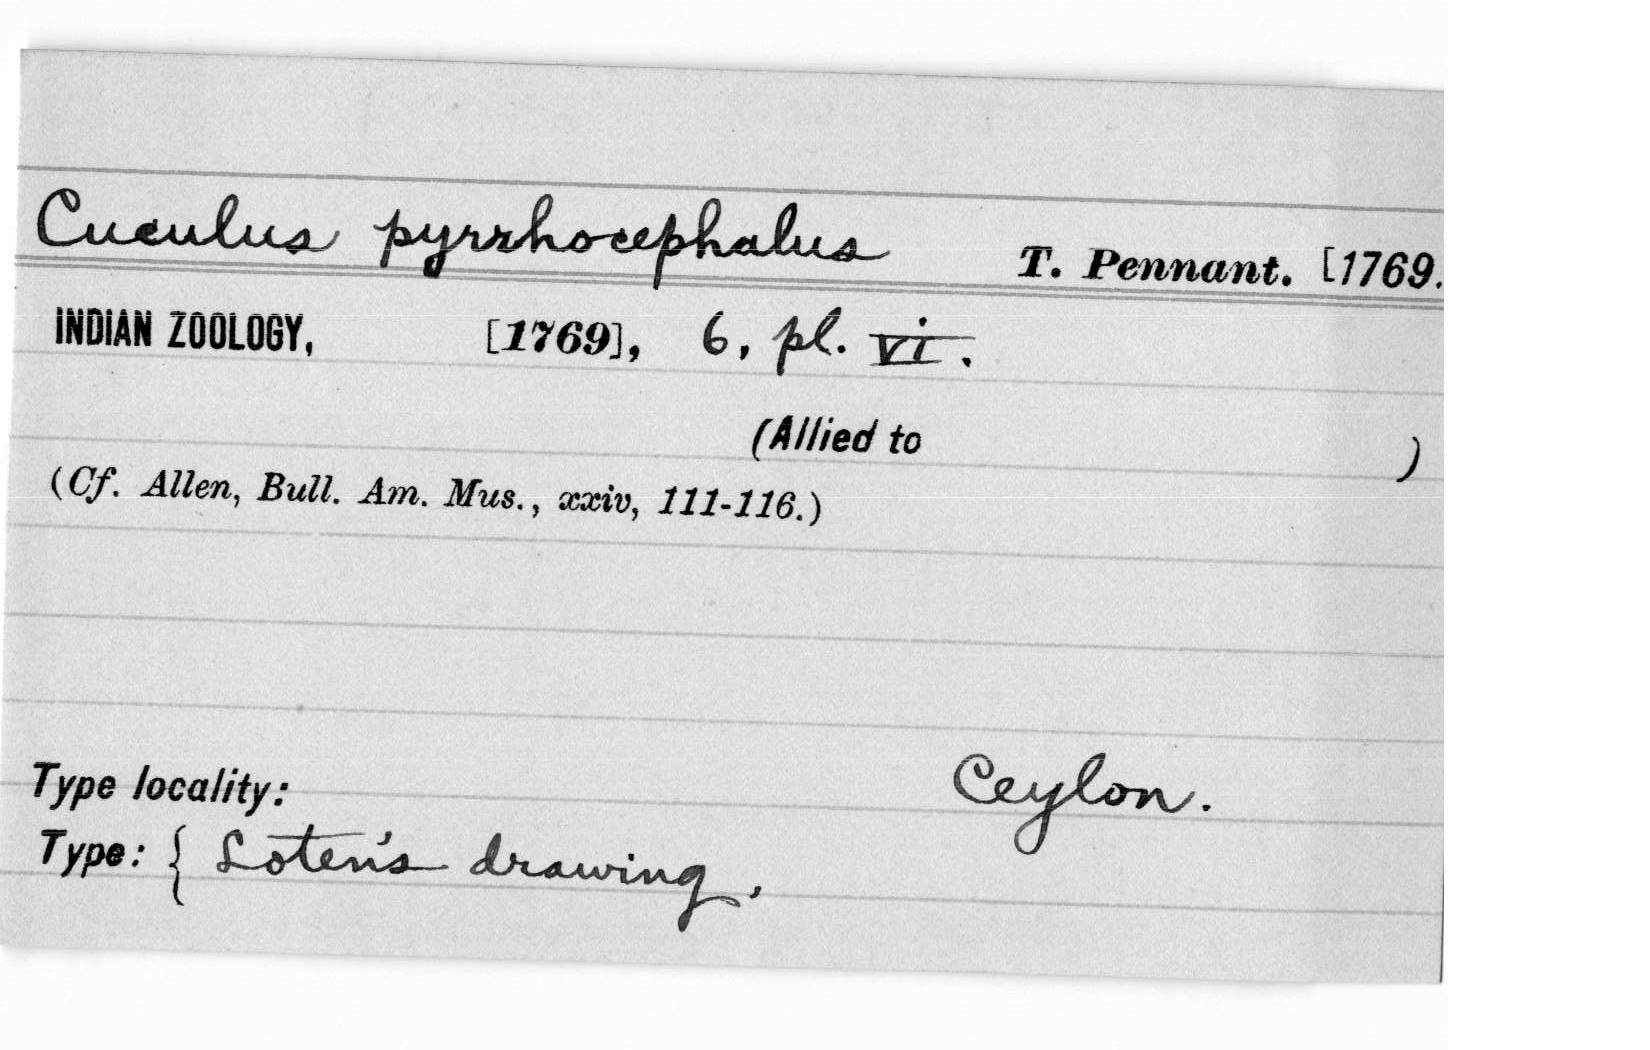 Cuculus pyrrhocephalus T. Pennant. [1769.
INDIAN ZOOLOGY, [1769], 6, pl. vi.
(Allied to )
(Cf. Allen, Bull. Am. Mus., xxiv, 111-116.)
Type locality: Ceylon.
Type: { Loten's drawing,